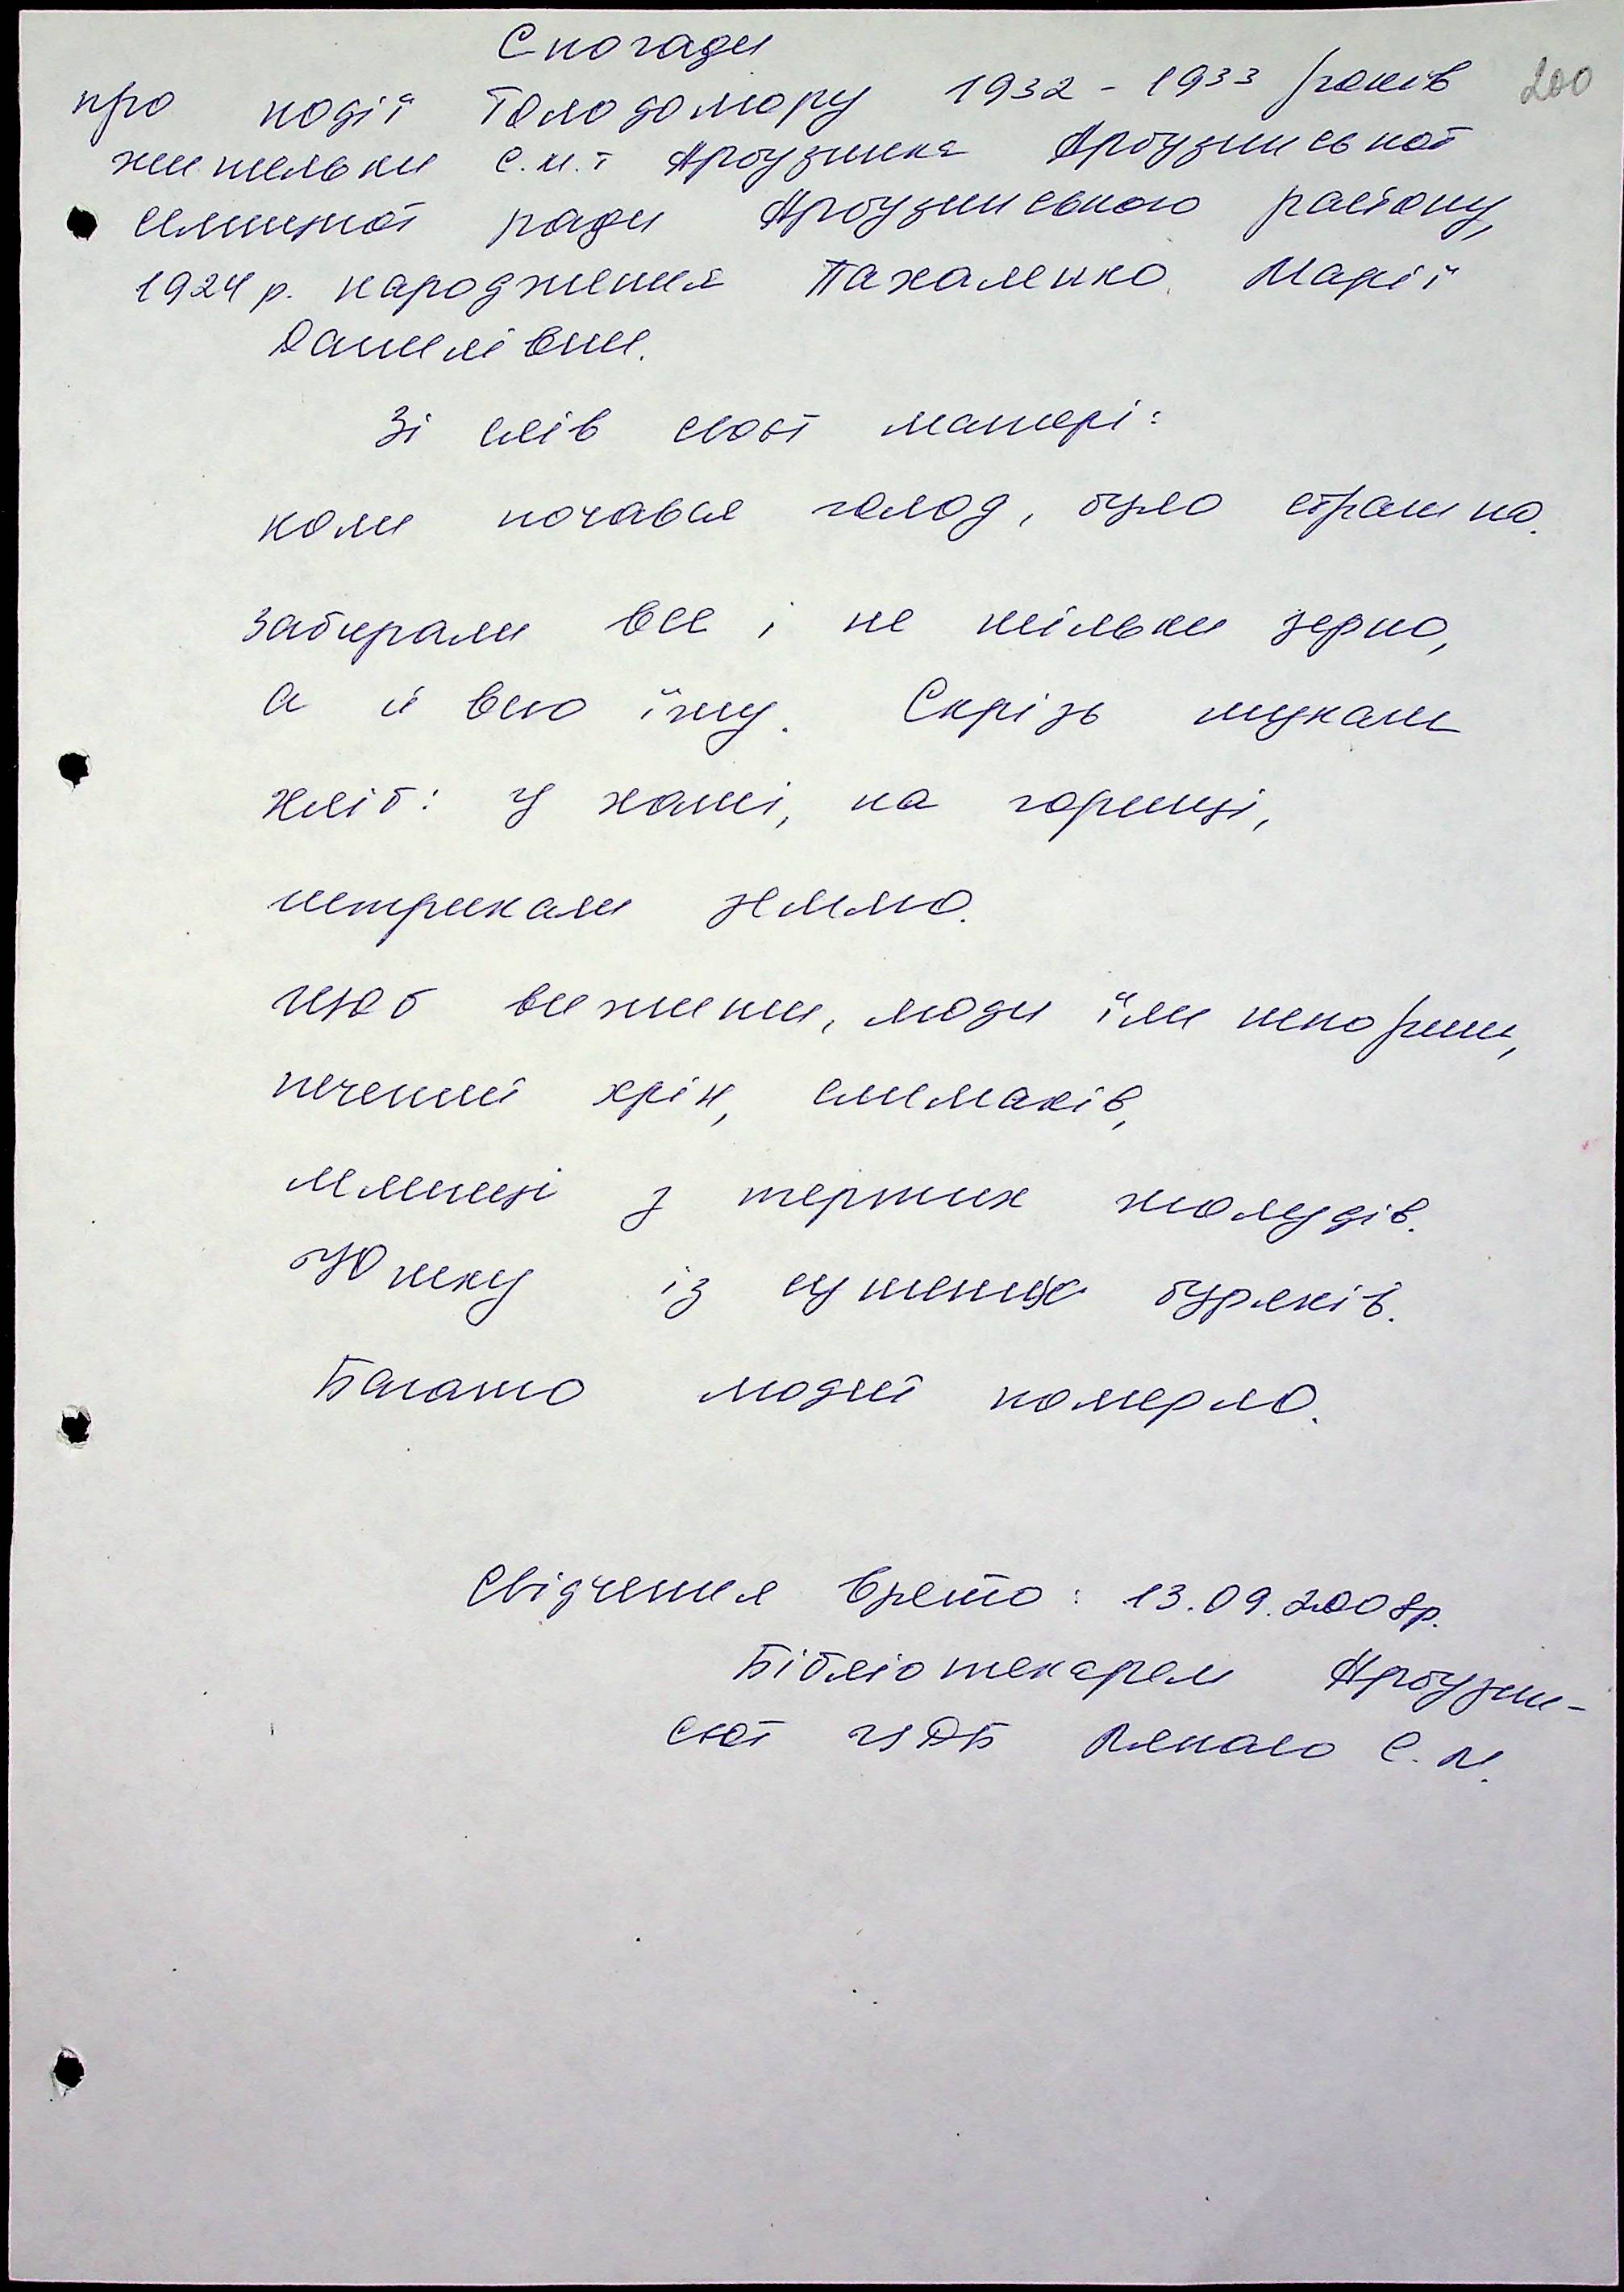 Спогади
200
про події Голодомору 1932 - 1933 років
жительки с.м.т Арбузинка Арбузинської
селищної ради Арбузинського району,
1924 р. народження Пахаленко Марії
Данилівни.
Зі слів своєї матері:
коли почався голод, було страшно.
Забирали все і не тільки зерно,
а й всю їжу. Скрізь шукали
хліб: у хаті, на горищі,
штрикали землю.
Щоб вижити, люди їли шкориш,
печений хрін, слимаків,
млинці з тертих жолудів.
Юшку із сушених буряків.
Багато людей померло.
Свідчення взято: 13.09.2008р.
Бібліотекарем Арбузин-
ської ЦДБ С. М.